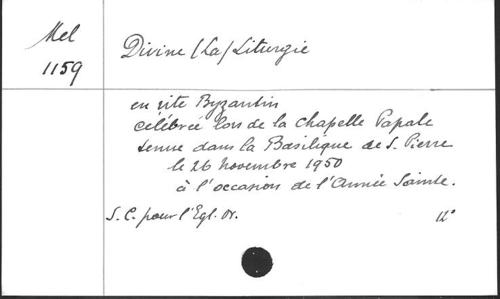 Mel
1159
Divine (La) Liturgie
en rite Byzantin
célébrée lors de la chapelle Papale
tenue dans la Basilique de S. Pierre
le 26 novembre 1950
à l'occasion de l'Année Sainte.
S. C. pour l'Egl. Or. 12°